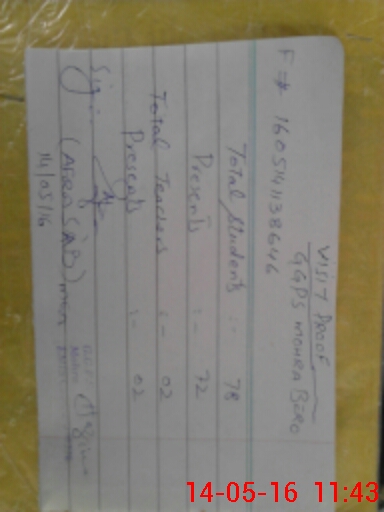 VISIT PROOF
GGPS MOHRA BERO
F # 1605141138646
Total Students :- 78
Presents :- 72
Total Teachers :- 02
Presents :- 02
Sig:
14/05/16
14-05-16 11:43